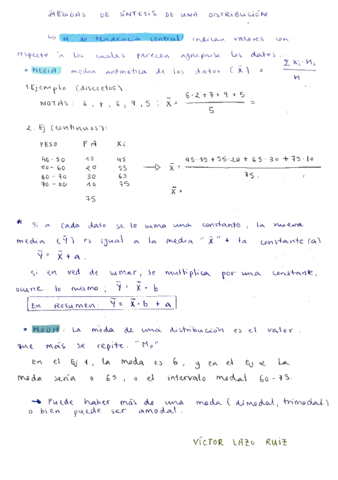 MEDIDAS DE SÍNTESIS DE UNA DISTRIBUCIÓN
↳ M de tendencia central indican valores con
respecto a los cuales parecen agruparse los datos.
• MEDIA media aritmética de los datos (x̄) = Σ xᵢ·nᵢ / n
1. Ejemplo (discretos).
NOTAS: 6, 7, 6, 9, 5 : x̄ = 6·2+7+9+5 / 5 =
2. Ej (continuos):
PESO FA Xi
40-50 15 45
50-60 20 55 → x̄ = 45·15+55·20+65·30+75·10 / 75
60-70 30 65
70-80 10 75 x̄ =
75
* Si a cada dato se le suma una constante, la nueva
media (Ȳ) es igual a la media "x̄" + la constante (a)
Ȳ = x̄ + a.
Si en vez de sumar, se multiplica por una constante,
ocurre lo mismo; Ȳ = x̄ · b
En Resumen: Ȳ = x̄·b + a
• MODA: La moda de una distribución es el valor
que más se repite. "Mo"
En el Ej 1, la moda es 6, y en el Ej 2 la
moda sería o 65, o el intervalo modal 60-75.
→ Puede haber más de una moda (bimodal, trimodal)
o bien puede ser amodal.
VÍCTOR LAZO RUIZ